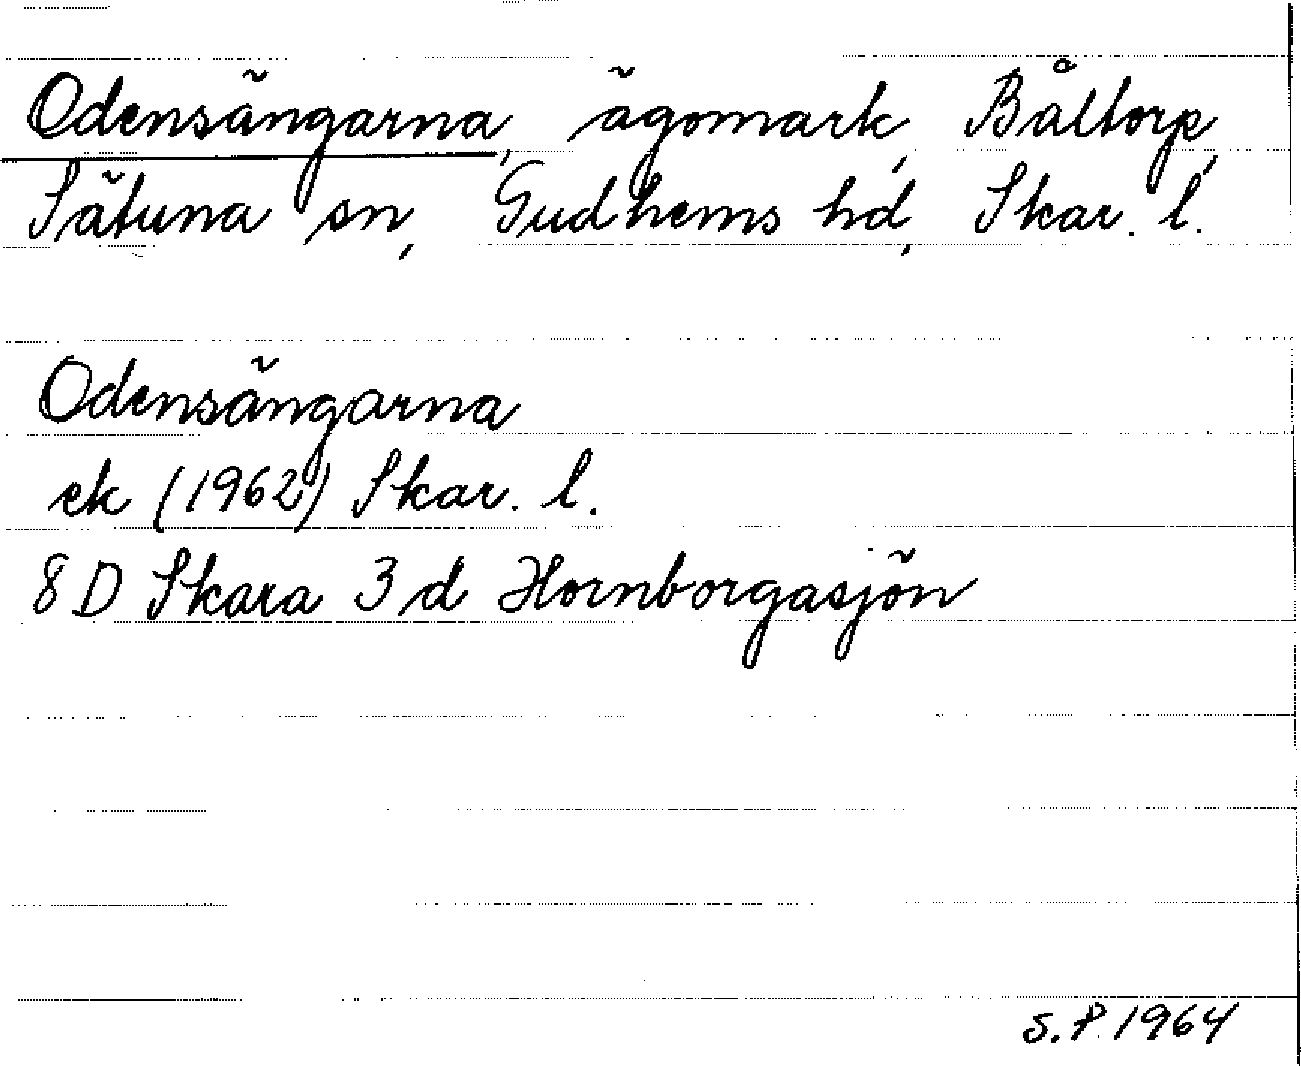 Odensängarna, ägomark, Båltorp,
Sätuna sn, Gudhems hd, Skar. l.
Odensängarna
ek (1962) Skar. l.
8 D Skara 3 d Hornborgasjön
S.P. 1964